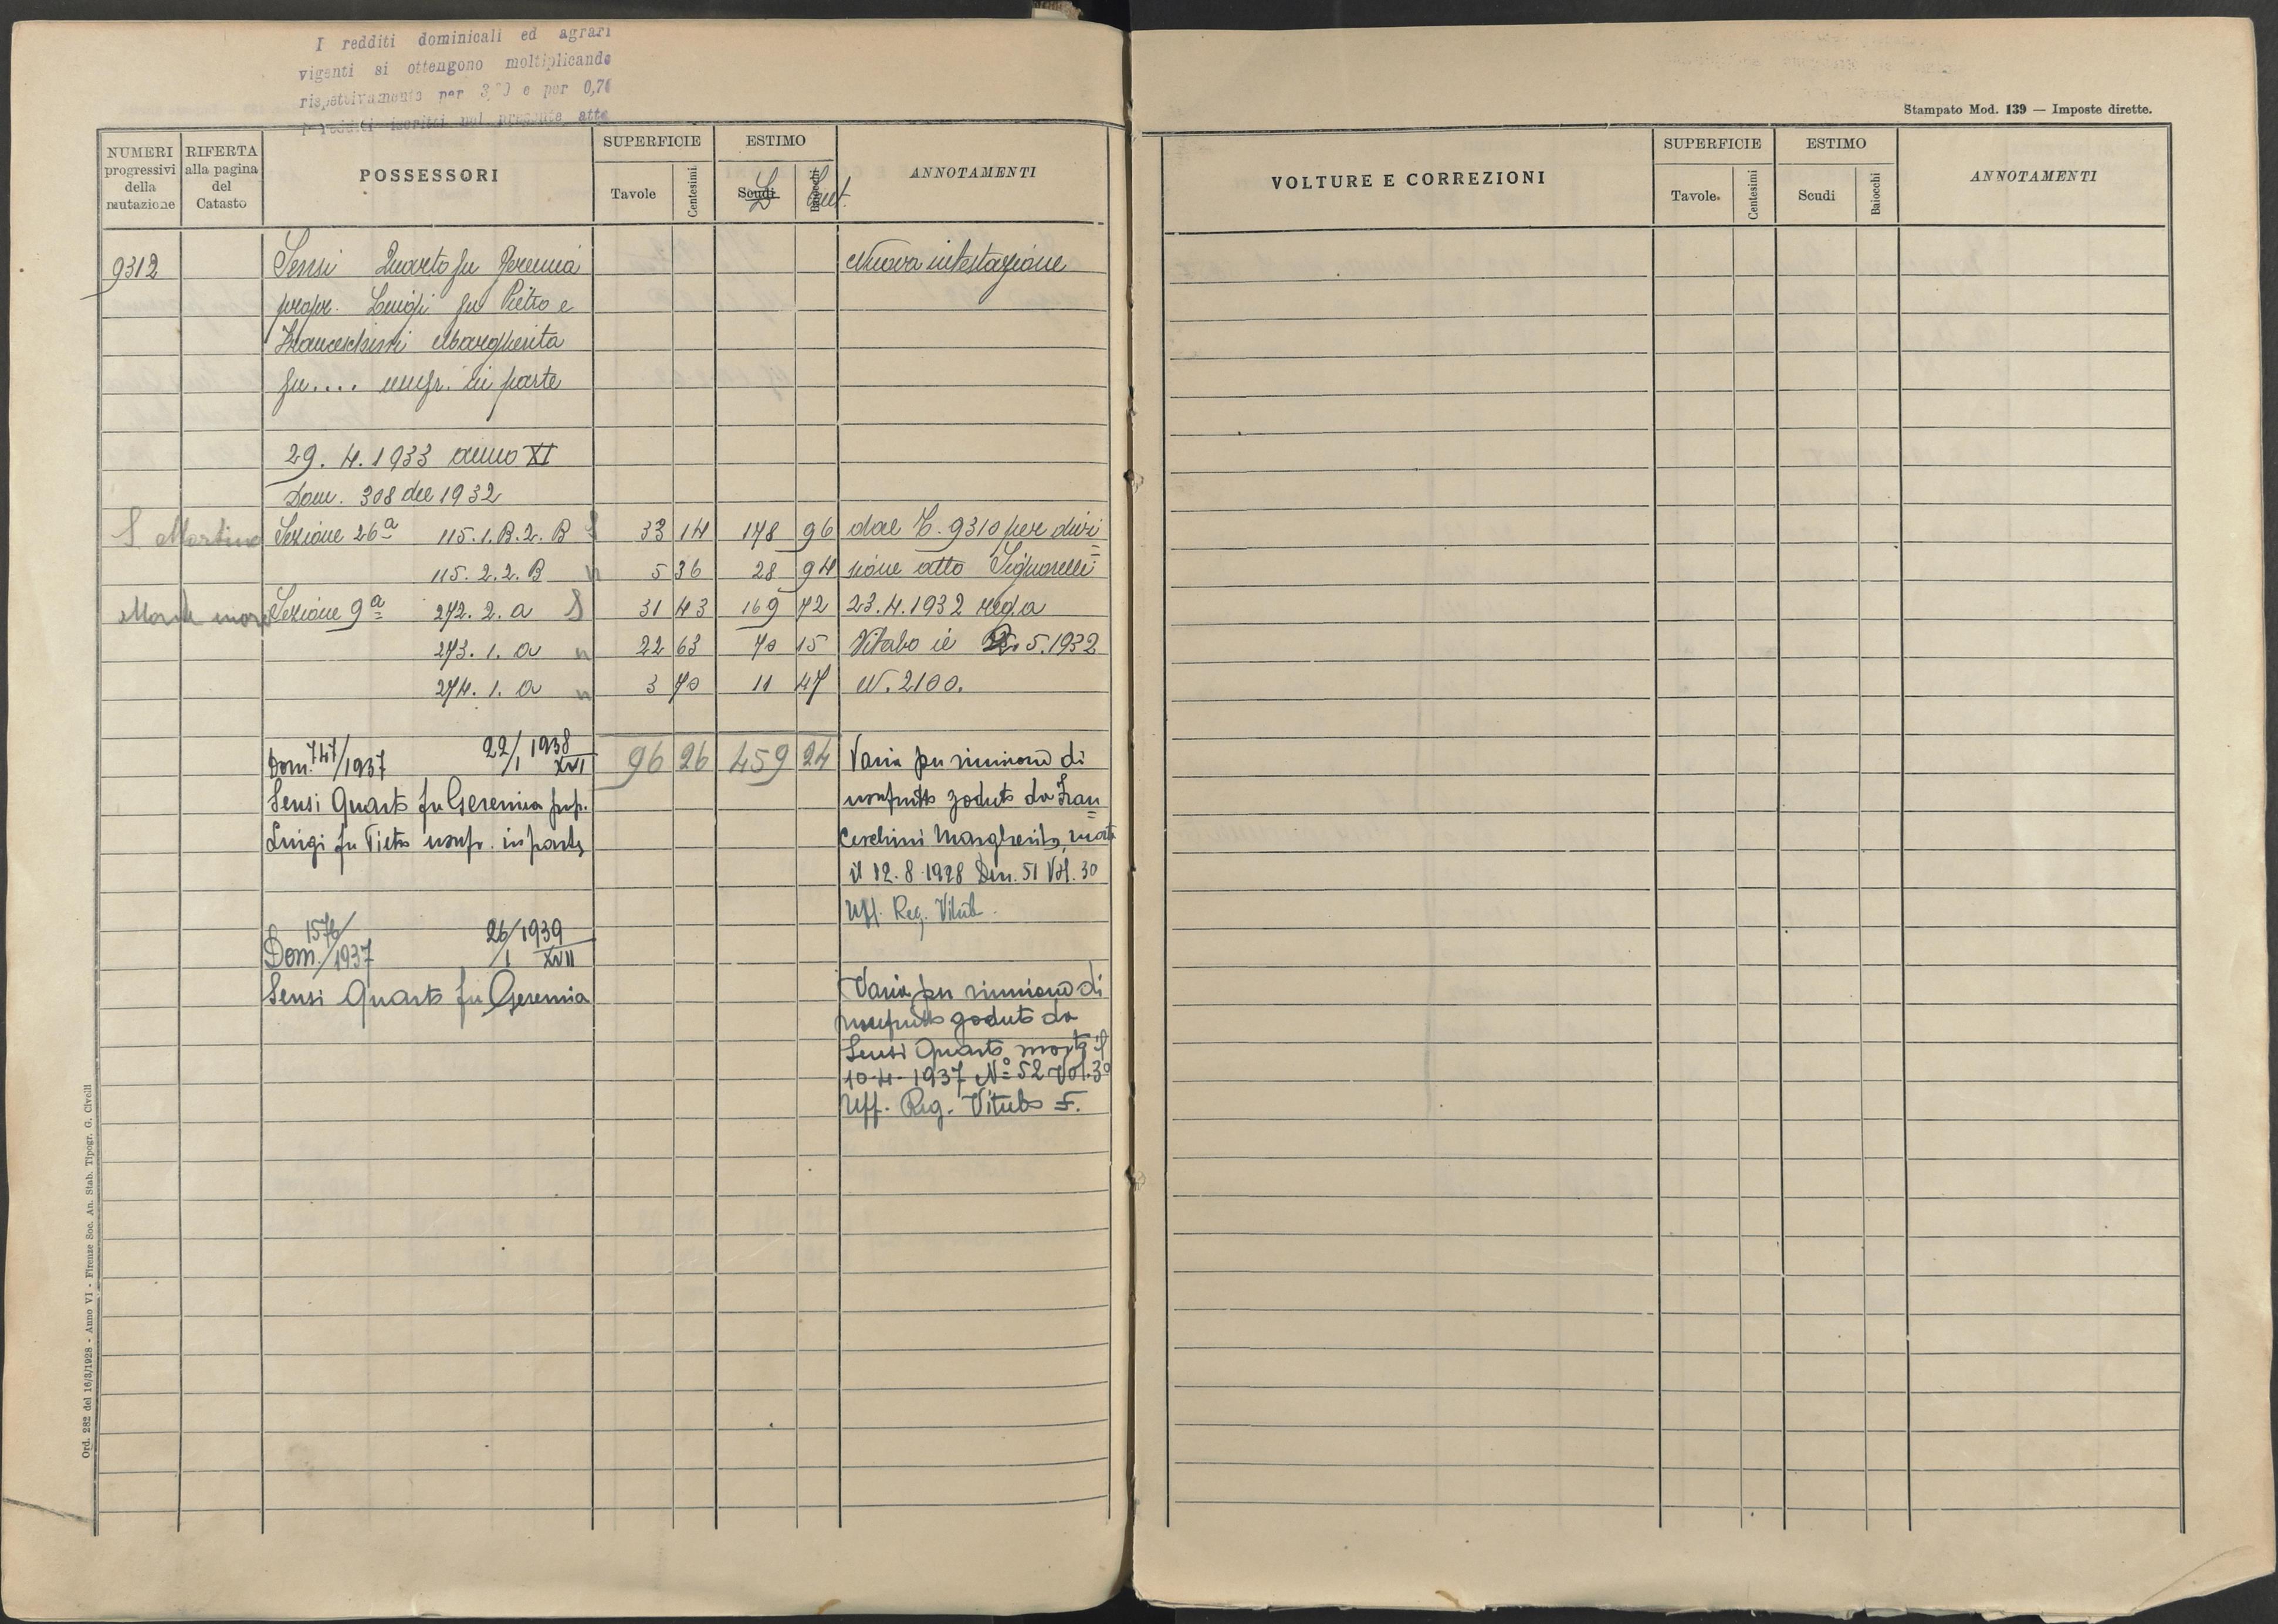 I redditi dominicali ed agrari
vigenti si ottengono moltiplicando
rispettivamente per e per 0,70
i redditi iscritti nel presente atto
NUMERI progressivi della mutazione
RIFERTA alla pagina del Catasto
POSSESSORI
SUPERFICIE
Tavole
Centesimi
ESTIMO
Scudi L
Baiocchi Cent.
ANNOTAMENTI
9312 Sensi Quarto fu Geremia Nuova intestazione
propr. Luigi fu Pietro e
Franceschini Margherita
fu.... usufr. in parte
29. 4. 1933 anno XI
Dom. 308 del 1932
S Martino Sezione 26ª 115.1.B.2.B S 33 14 178 96 dal C. 9310 per divi=
115.2.2.B " 5 36 28 94 sione atto Signorelli
Monte moro Sezione 9ª 272.2.a S 31 43 169 72 23.4.1932 reg. a
273.1.a " 22 63 70 15 Viterbo il 5.1932
274.1.a " 3 70 11 47 N. 2100.
Dom. 747/1937 22/1 1938 XVI 96 26 459 24 Varia per riunione di
Sensi Quarto fu Geremia prop. usufrutto goduto da Fran=
Luigi fu Pietro usufr. in parte ceschini Margherita, morta
il 12.8.1928 Den. 51 Vol. 30
Uff. Reg. Viterb.
Dom. 1576/1937 26/1 1939 XVII
Sensi Quarto fu Geremia Varia per riunione di
usufrutto goduto da
Sensi Quarto morto il
10-4-1937 Nº 52 Vol. 30
Uff. Reg. Viterbo F.
Ord. 282 del 16/3/1928 - Anno VI - Firenze Soc. An. Stab. Tipogr. G. Civelli
Stampato Mod. 139 — Imposte dirette.
VOLTURE E CORREZIONI
SUPERFICIE
Tavole.
Centesimi
ESTIMO
Scudi
Baiocchi
ANNOTAMENTI